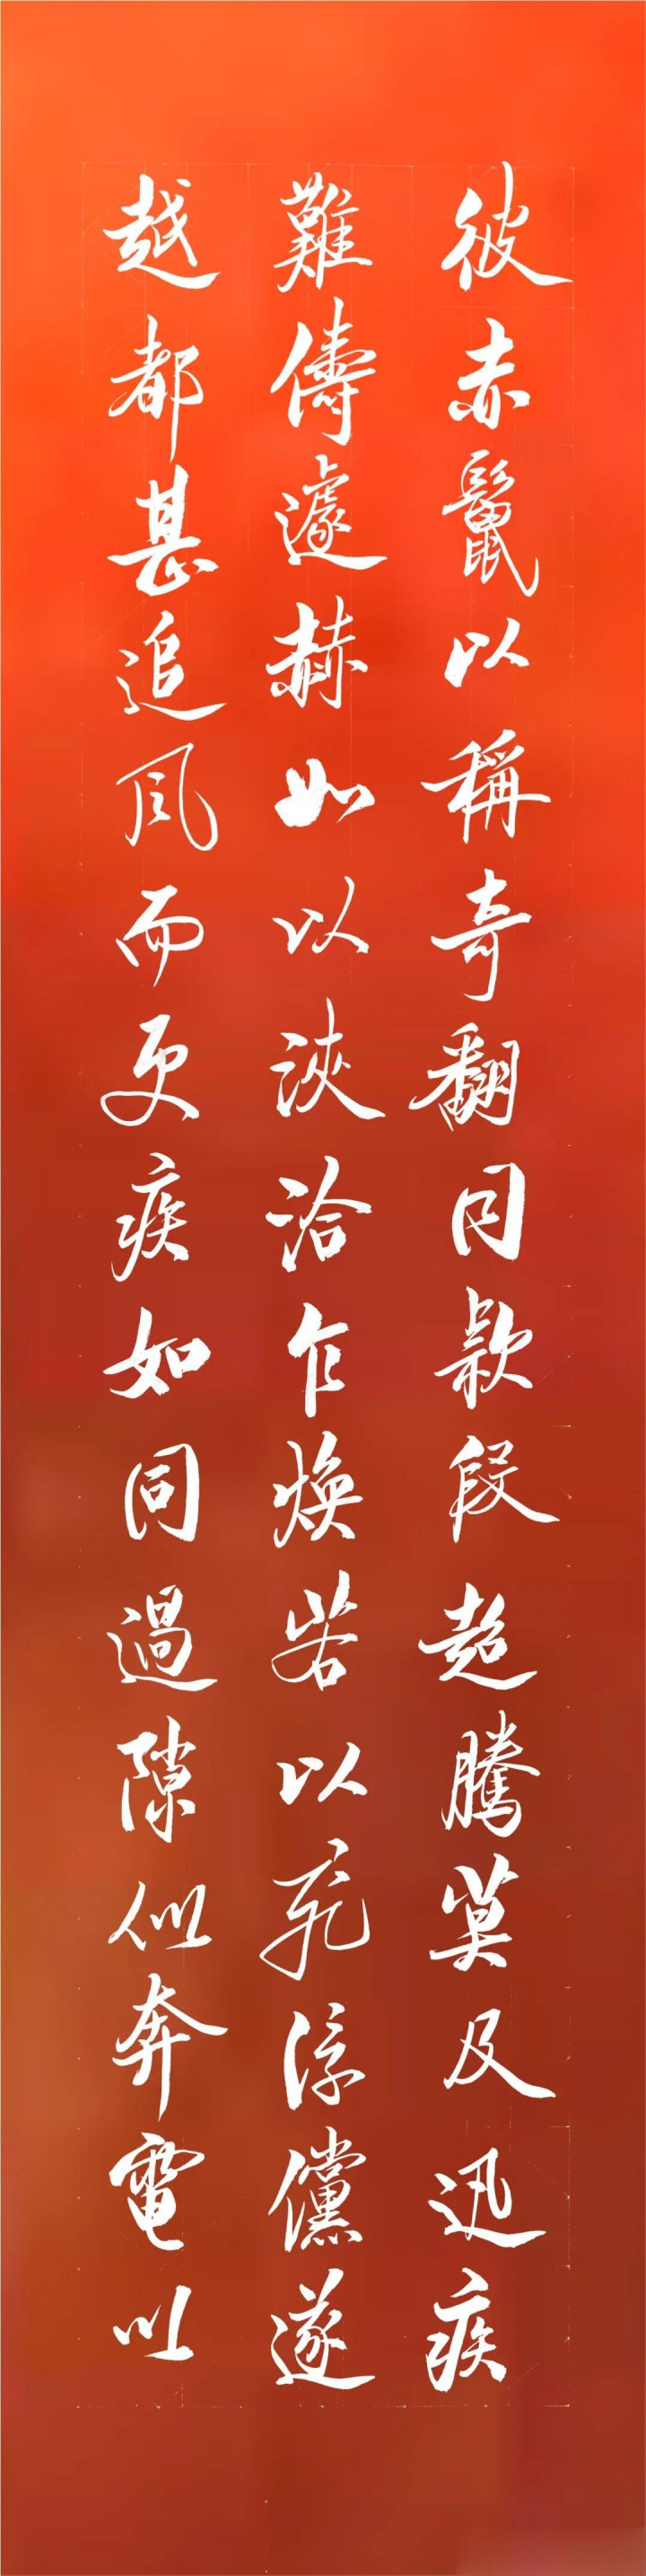 彼赤鬣以稱奇翻同款段超騰莫及迅疾
難儔遽赫如以浹洽乍煥若以飛浮儻遂
越都甚追風而更疾如同過隙似奔電以